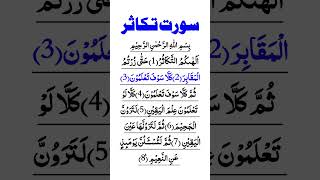 سورت تکاثر
بِسْمِ اللّٰهِ الرَّحْمٰنِ الرَّحِيْمِ
اَلْهٰىكُمُ التَّكَاثُرُ (1) حَتّٰى زُرْتُمُ
الْمَقَابِرَ (2) كَلَّا سَوْفَ تَعْلَمُوْنَ (3)
ثُمَّ كَلَّا سَوْفَ تَعْلَمُوْنَ (4) كَلَّا لَوْ
تَعْلَمُوْنَ عِلْمَ الْيَقِيْنِ (5) لَتَرَوُنَّ
الْجَحِيْمَ (6) ثُمَّ لَتَرَوُنَّهَا عَيْنَ
الْيَقِيْنِ (7) ثُمَّ لَتُسْـَٔلُنَّ يَوْمَىِٕذٍ
عَنِ النَّعِيْمِ (8)